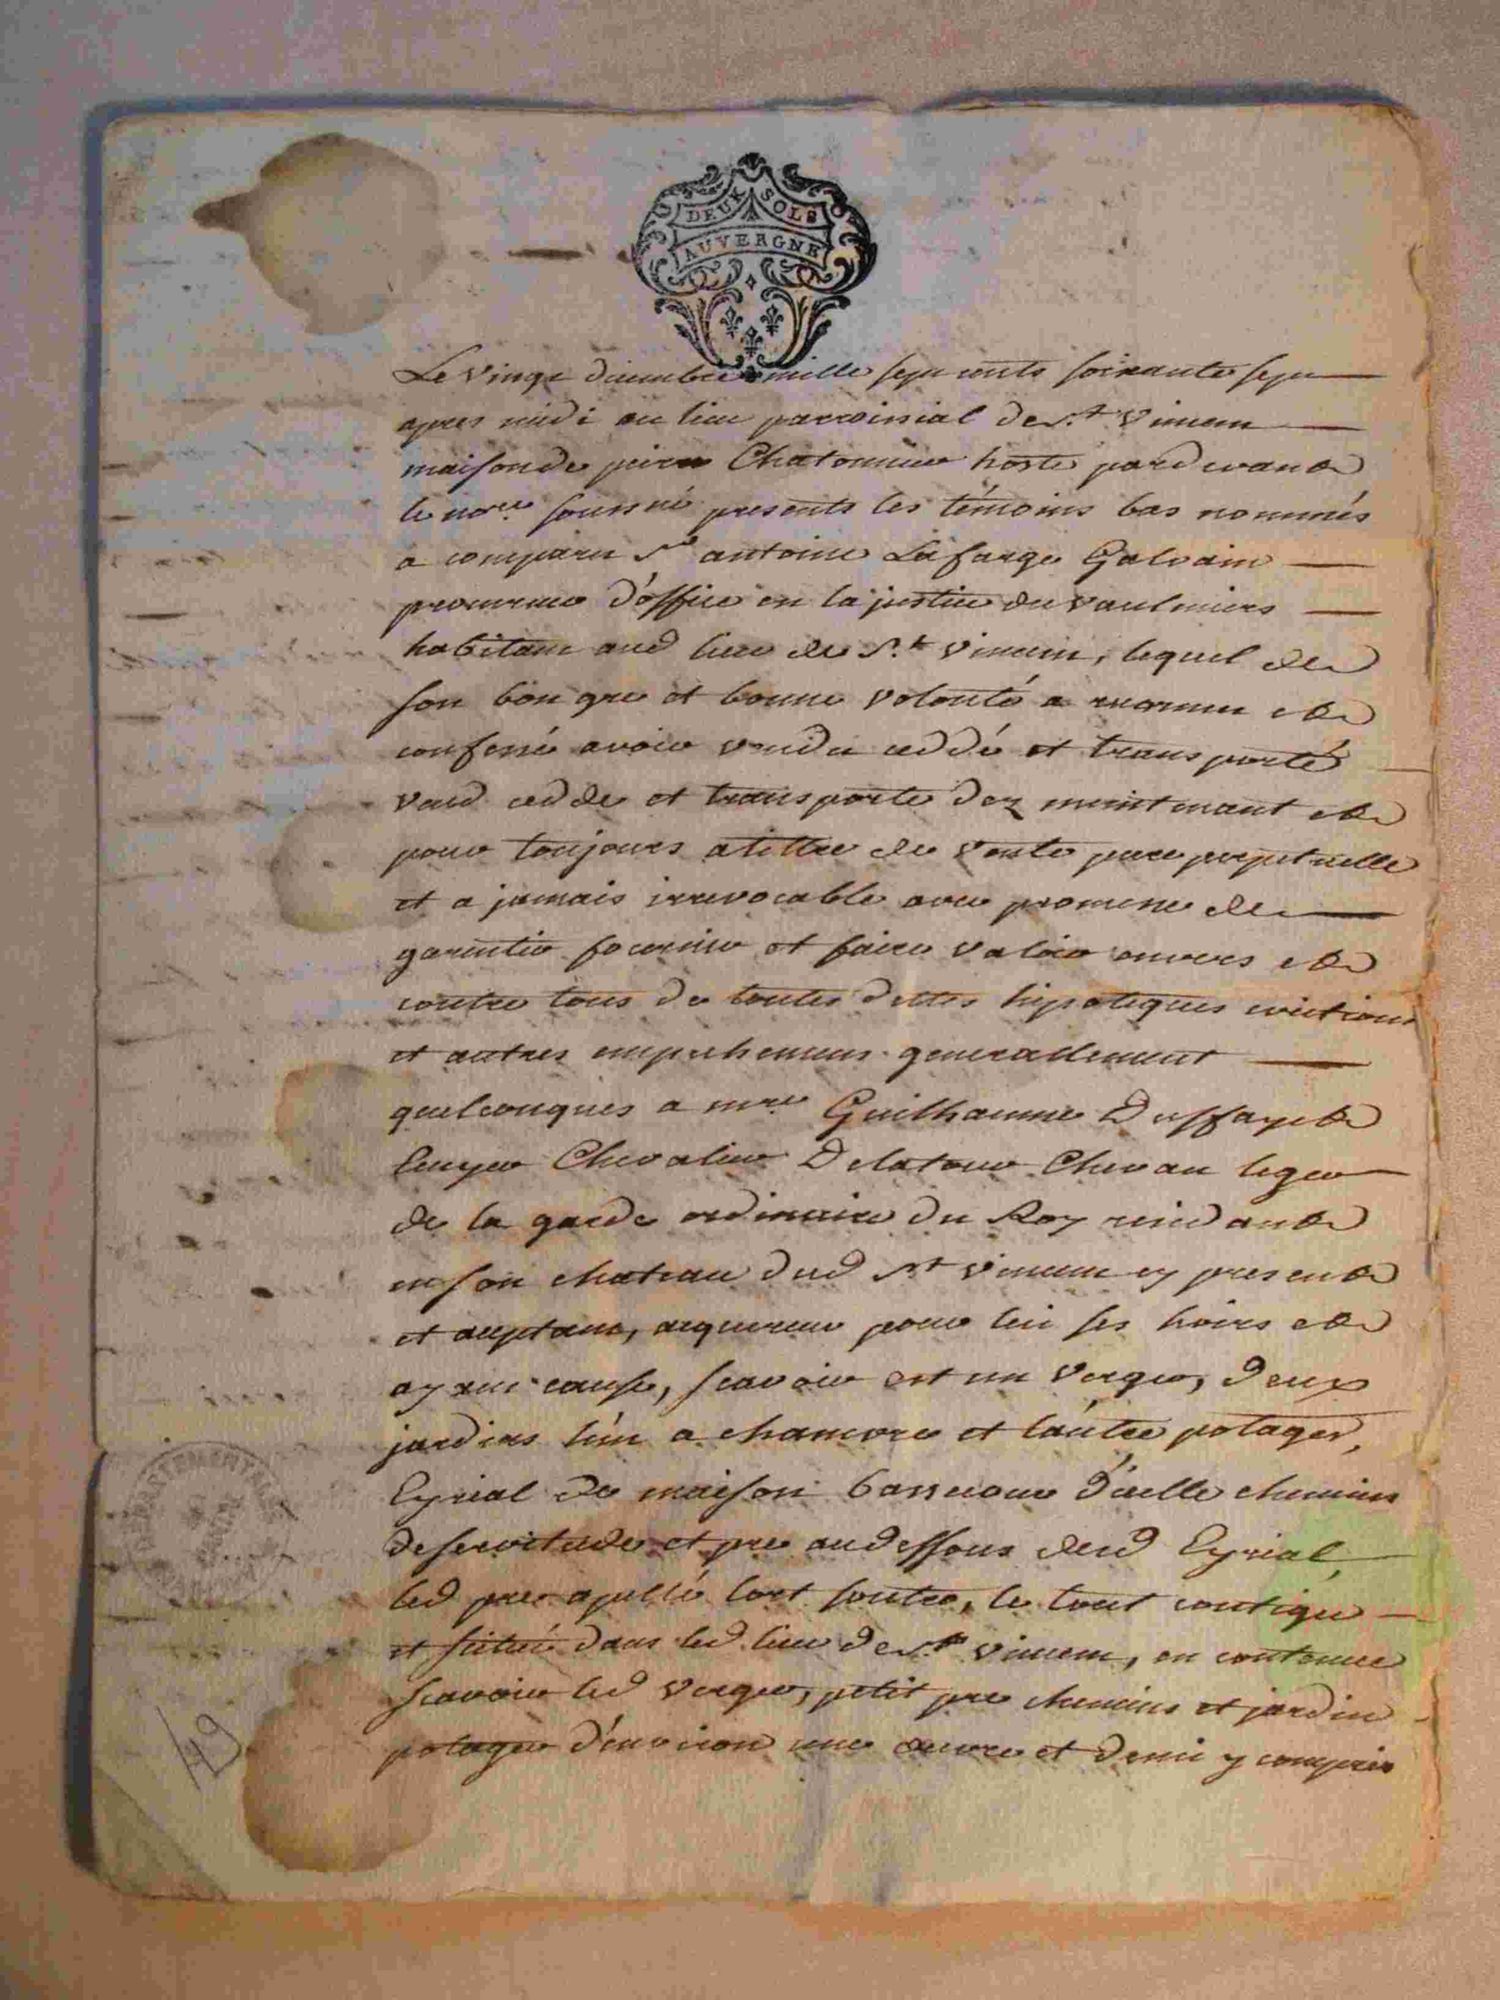 DEUX SOLS
AUVERGNE
Le vingt decembre mille sept cents soixante sept
apres midi au lieu parroissial de St Vincent
maison de pierre Chatonnier hoste pardevant
le nore soussné presents les témoins bas nommés
a comparu Sr antoine Lafarge Galvain
procureur d'office en la justice du vaulmiers
habitant aud lieu de St Vincent, lequel de
son bon gre et bonne volonté a reconnu et
confessé avoir vendu ceddé et transporté
vend cedde et transporte dez maintenant et
pour toujours a tittre de vente pure perpetuelle
et a jamais irrevocable avec promesse de
garentir fournir et faire valoir envers et
contre tous de toutes dettes hipoteques evictions
et autres empechemens generallement
quelconques a mre Guilhaume Duffayet
Ecuyer Chevalier Delatour Chevau leger
de la garde ordinaire du Roy residant
en son chateau dud St Vincent cy present
et acceptant, acquereur pour lui ses hoirs et
ayant cause, scavoir est un verger, deux
jardins l'un a chamvre et l'autre potager,
Eyrial de maison bassecour d'icelle chemins
deservitude et pre au dessous dud Eyrial,
led pre apellé lort soutre, le tout contigu
et scitué dans led lieu de St Vincent, en contenue
scavoir led verger, petit pre chemins et jardin
potager d'environ une œuvre et demi y compris
149
DEPARTEMENTALES